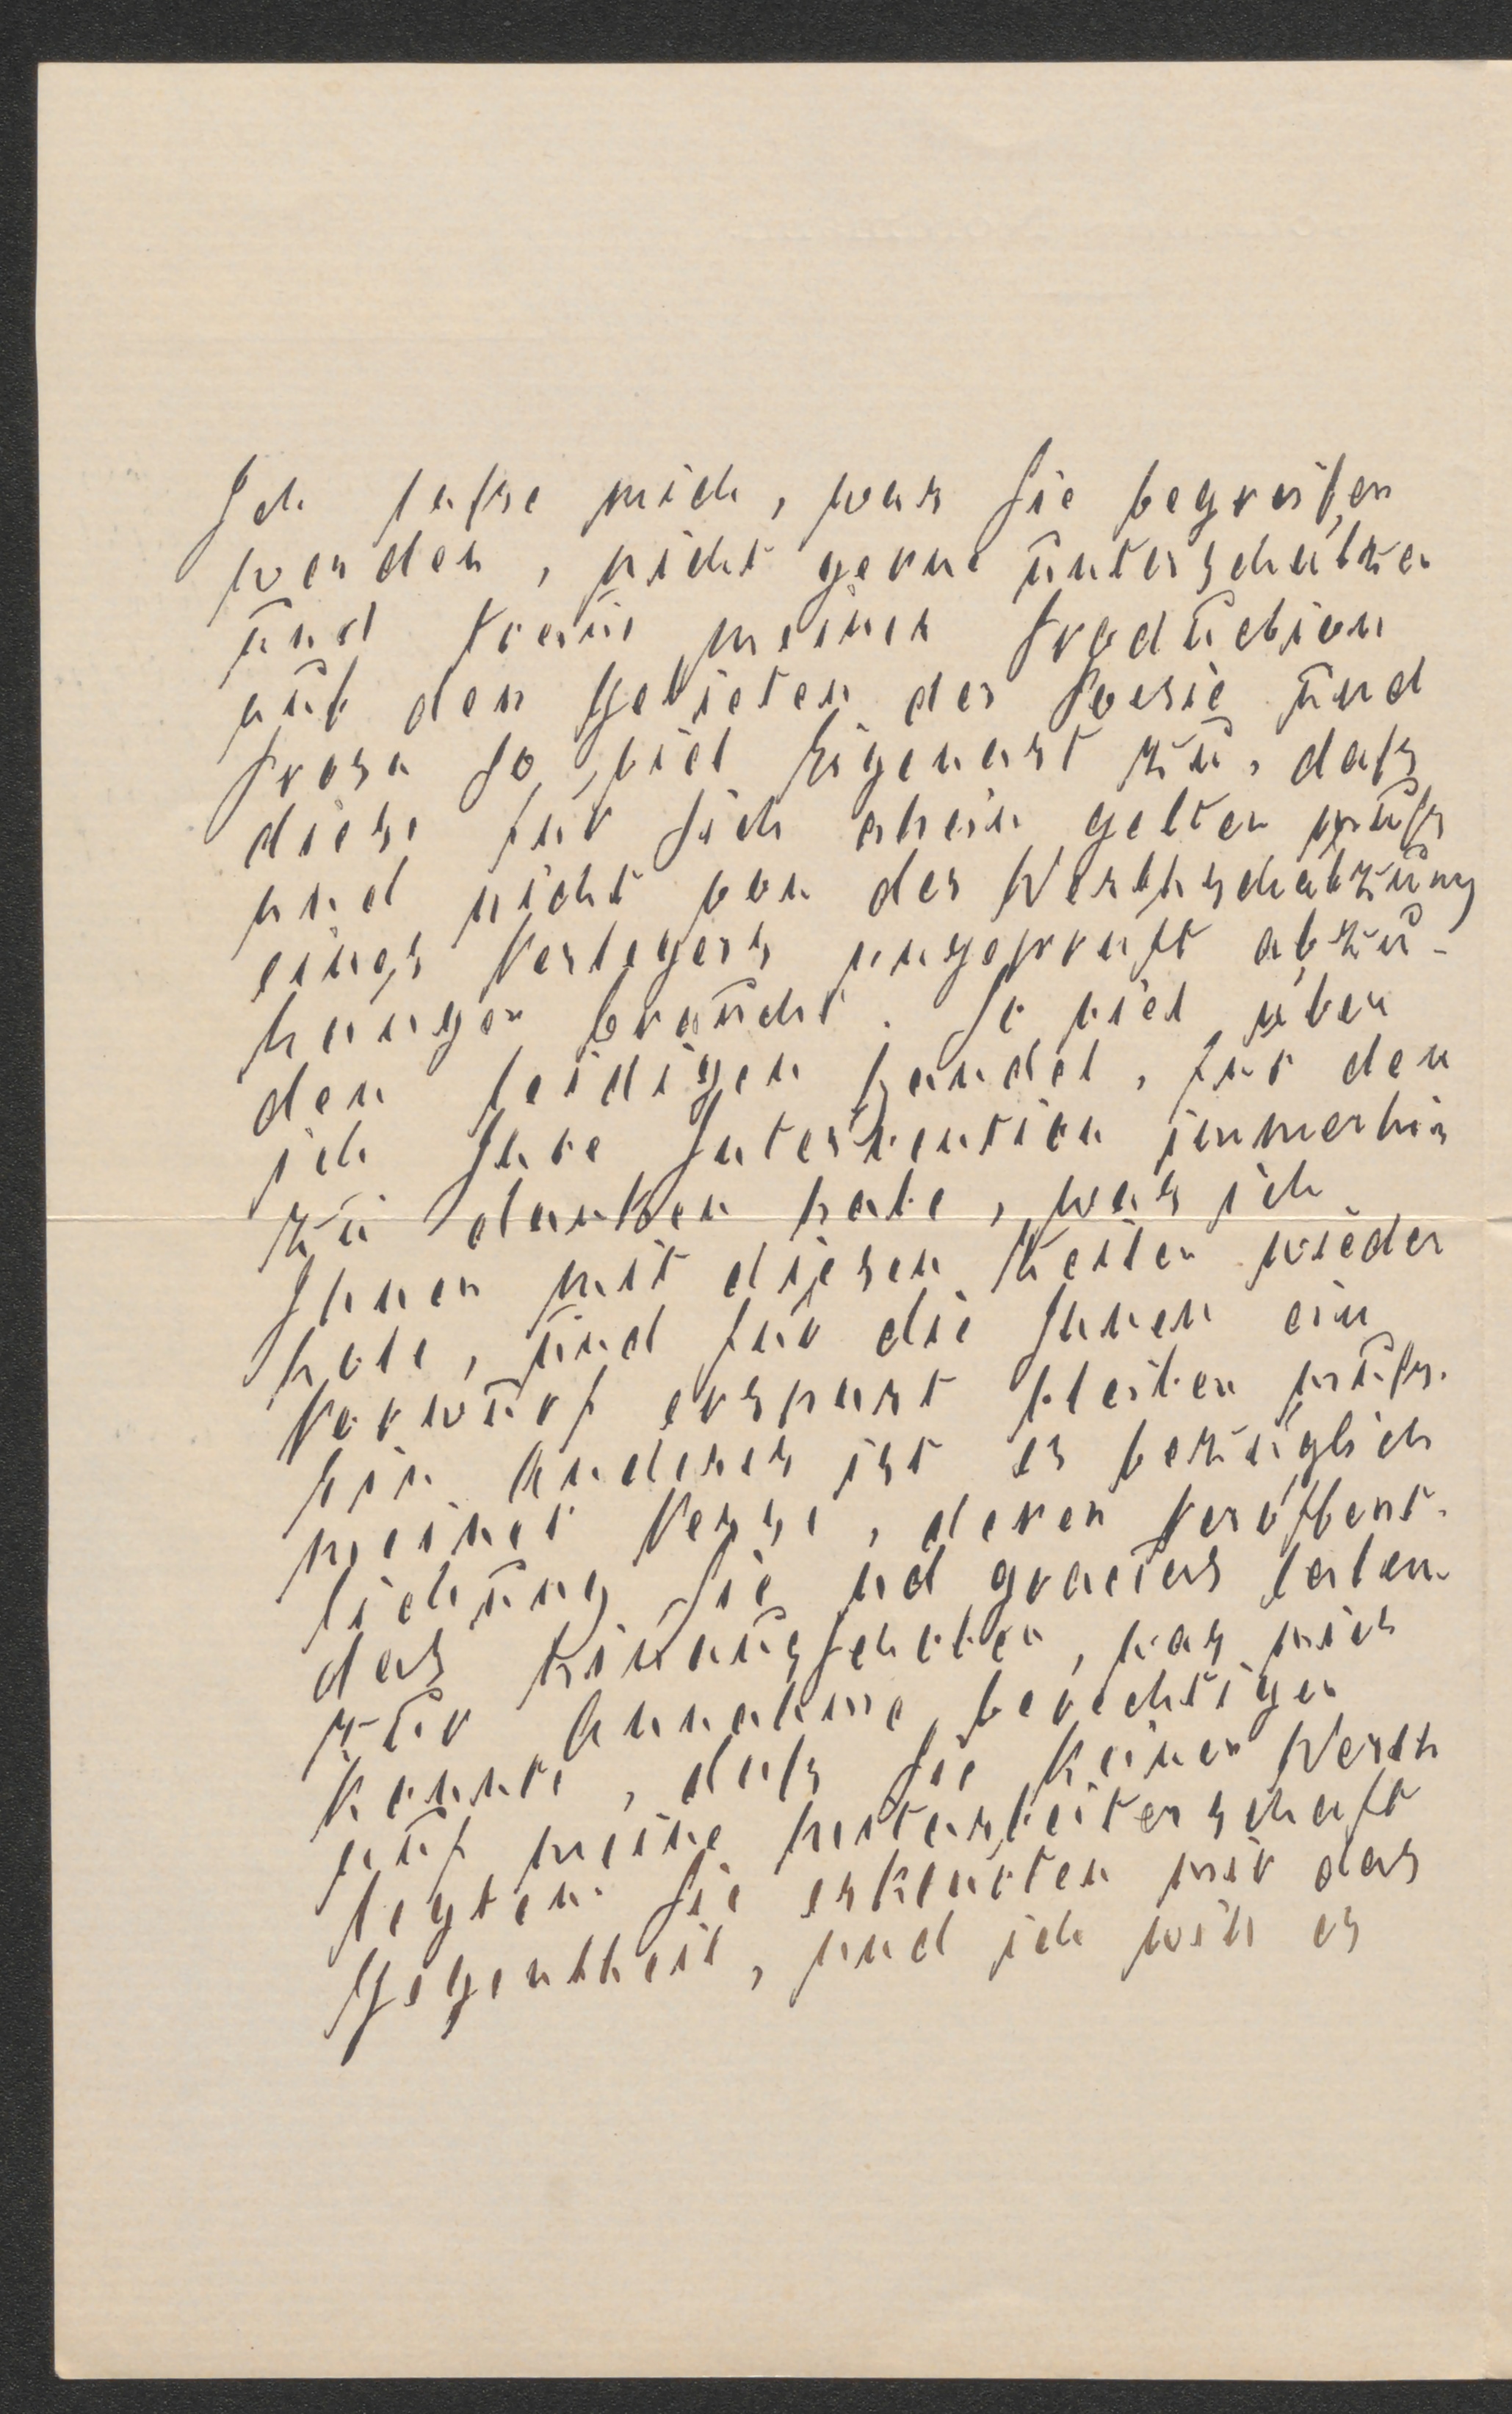 Ich lasse mich, was Sie begreifen
werden, nicht gerne unterschätzen
und traue meiner Production
auf den Gebieten der Poesie und
Prosa so viel Eigenart zu, dass
diese für sich allein gelten muss
und nicht von der Werthschätzung
eines Verlegers ungeprüft abzu-
hangen braucht. So viel über
den leidigen Handel, für den
ich Ihre Intervention immerhin
zu danken habe, was ich
Ihnen mit diesen Zeilen wieder
hole, und für die Ihnen ein
Vorwurf erspart bleiben muss.
Ein Anderes ist es bezüglich
meiner Verse, deren Veröffent-
lichung Sie ad graecas calen-
das hinausschoben, was mich
zur Annahme berechtigen
konnte, dass Sie keinen Werth
auf meine Mitarbeiterschaft
legten. Sie erklärten mir das
Gegentheil, und ich will es